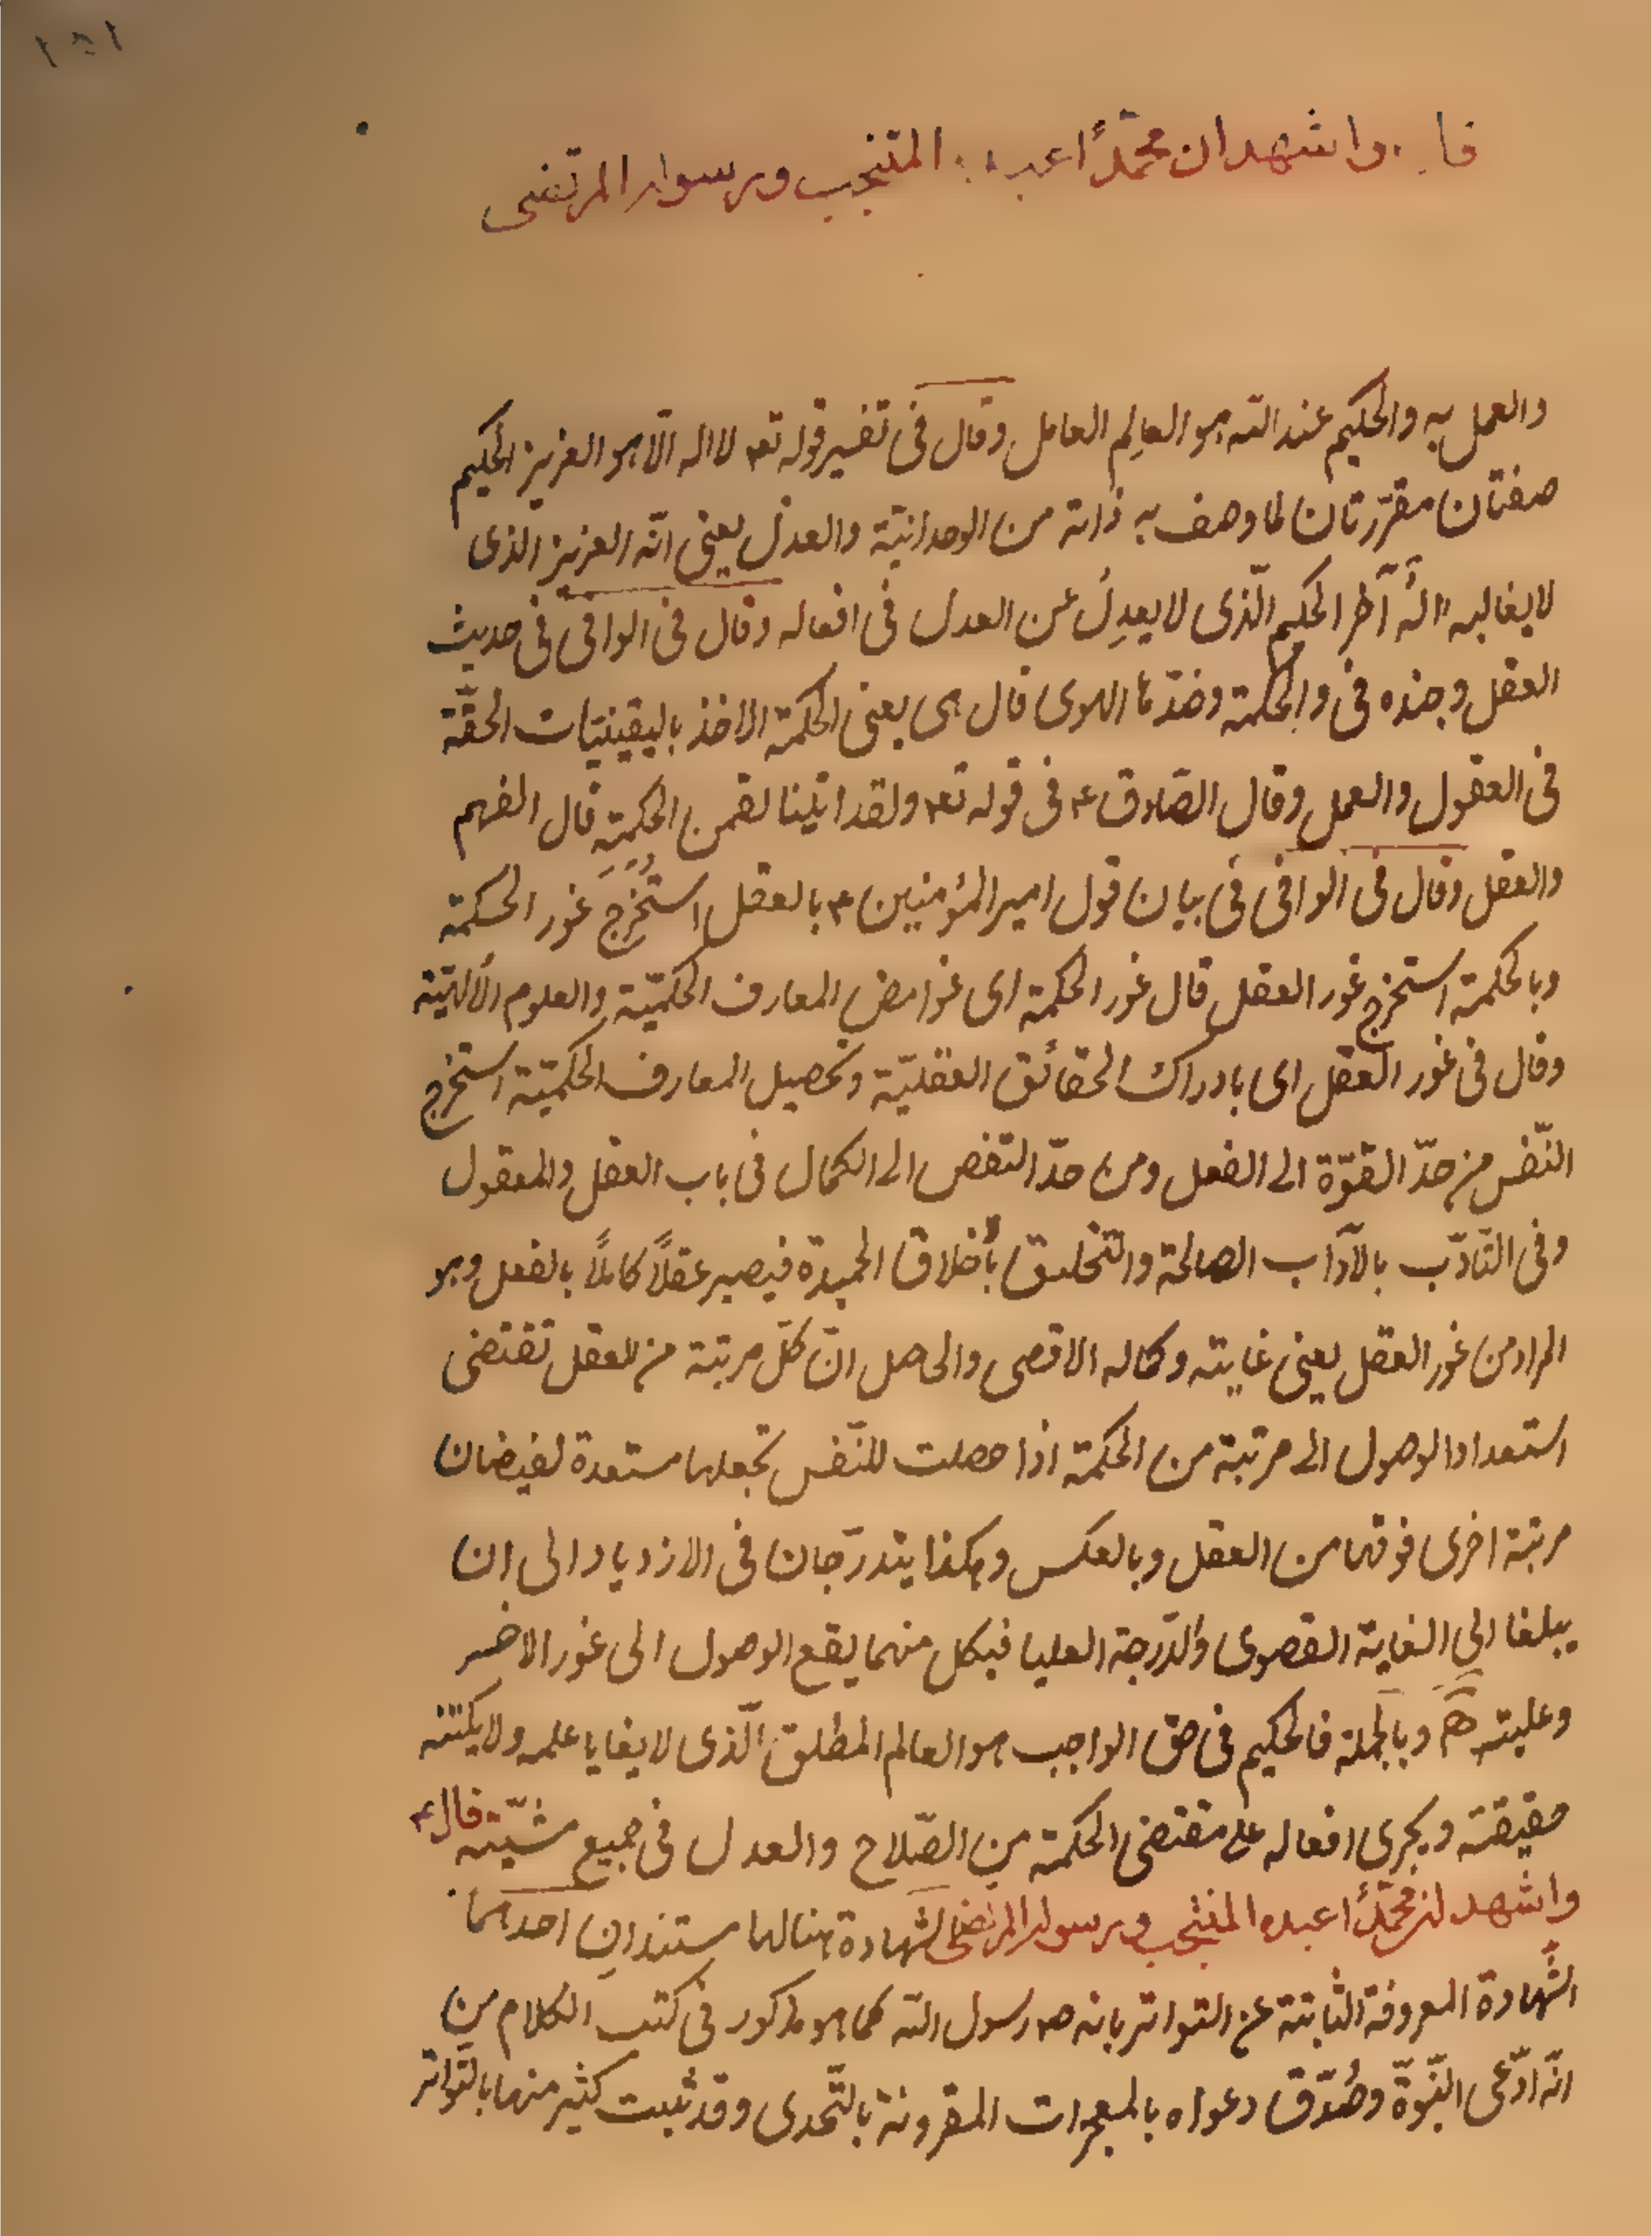 ١٥١
واشهد ان محمّدًا عبده المنتجب ورسوله المرتضى
والعمل به والحكيم عند الله هو العالِم العامل وقال فى تفسير قوله تعـ لا اله الّا هو العزيز الحكيم
صفتان مقرّرتان لما وصف به ذاته من الوحدانيّة والعدل يعنى انّه العزيز الذى
لا يغالبه الهٌ آخر الحكيم الّذى لا يعدِلُ عن العدل فى افعاله وقال فى الوافى فى حديث
العقل وجنده فى والحكمة وضدّها الهوى قال هى يعنى الحكمة الاخذ باليقينيّات الحقّة
فى العقول والعمل وقال الصّادق ع فى قوله تعـ ولقد اتينا لقمن الحكمة قال الفهم
والعقل وقال فى الوافى فى بيان قول امير المؤمنين ع بالعقل اسْتُخْرِجَ غور الحكمة
وبالحكمة استخرج غور العقل قال غور الحكمة اى غوامض المعارف الحكميّة والعلوم الالهيّة
وقال فى غور العقل اى بادراك الحقائق العقليّة وتحصيل المعارف الحكميّة استخرج
النّفس من حدّ القوّة الى الفعل ومن حدّ النقص الى الكمال فى باب العقل والمعقول
وفى التّادّب بالآداب الصالحة والتخلق بأخلاق الحميدة فيصير عقلًا كاملًا بالفعل وهو
المراد من غور العقل يعنى غايته وكماله الاقصى والحاصل انّ كلّ مرتبة من العقل تقتضى
استعدادا لوصول الى مرتبة من الحكمة اذا حصلت للنّفس تجعلها مستعدة لفيضان
مرتبة اخرى فوقها من العقل وبالعكس وهكذا يتدرّجان فى الازدياد الى ان
يبلغا الى الغاية القصوى والدّرجة العليا فبكل منهما يقع الوصول الى غور الاخر
وبالجملة فالحكيم فى حق الواجب هو العالم المطلق الّذى لا يغايا علمه ولا يكتنه
حقيقته ويجرى افعاله على مقتضى الحكمة من الصّلاح والعدل فى جميع مشيّته قال ع
واشهد ان محمّدًا عبده المنتجب ورسوله المرتضى الشهادة هنا لها مستندان احدهما
الشّهادة المعروفة الثابتة عن التواتر بانه ص رسول الله كما هو مذكور فى كتب الكلام من
انّه ادّعى النّبوّة وصُدّق دعواه بالمعجزات المقرونة بالتّحدى وقد ثبت كثير منها بالتّواتر